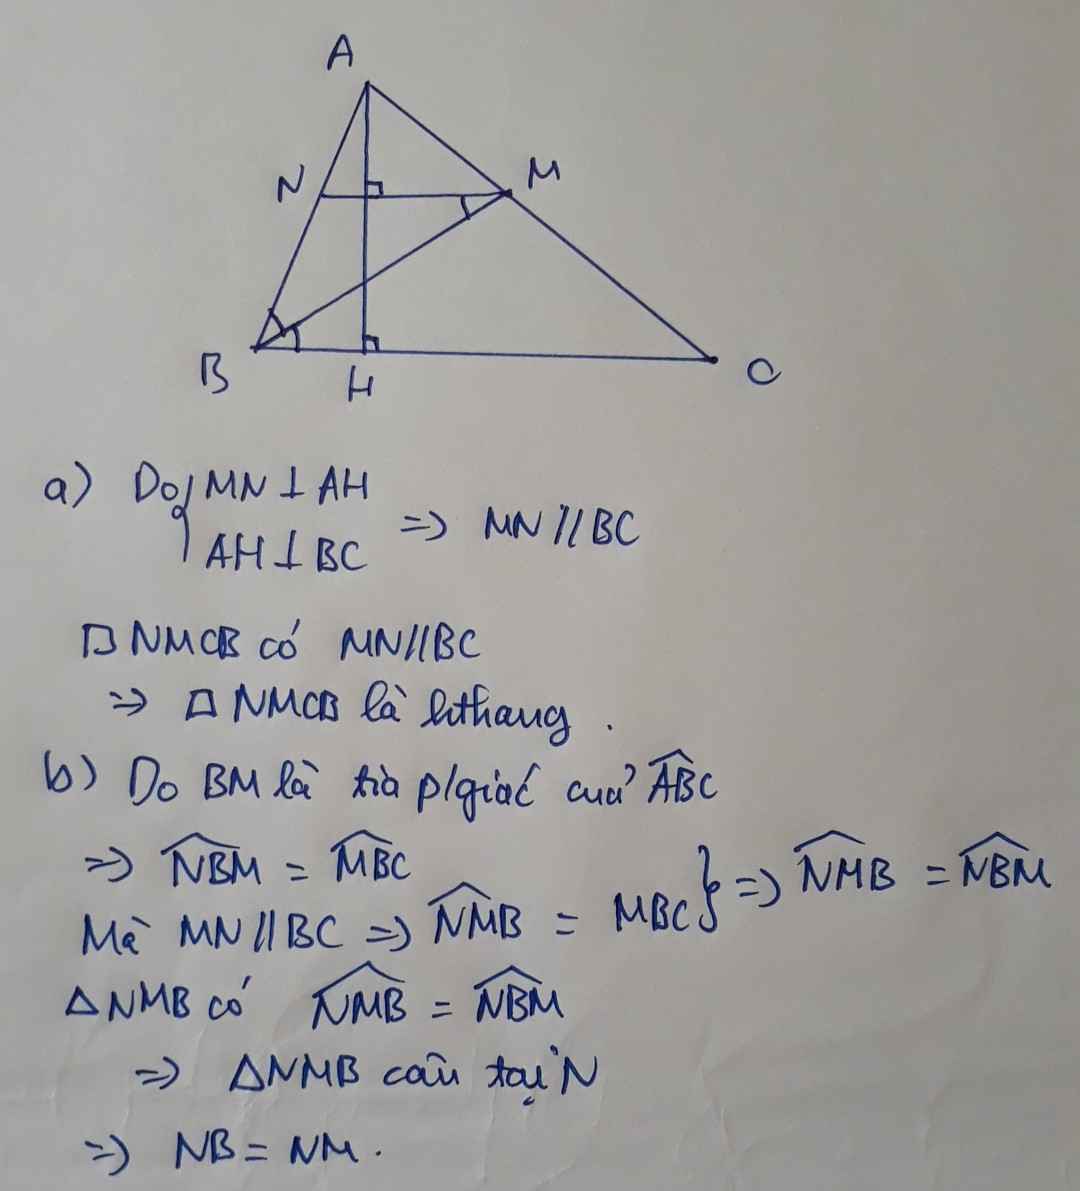 A
N
M
B
H
C
a) Do { MN ⊥ AH
AH ⊥ BC => MN // BC
▱ NMCB có MN//BC
=> ▱ NMCB là hthang .
b) Do BM là tia p/giác của \widehat{ABC}
=> \widehat{NBM} = \widehat{MBC}
Mà MN // BC => \widehat{NMB} = MBC } => \widehat{NMB} = \widehat{NBM}
△NMB có \widehat{NMB} = \widehat{NBM}
=> △NMB cân tại N
=> NB = NM .